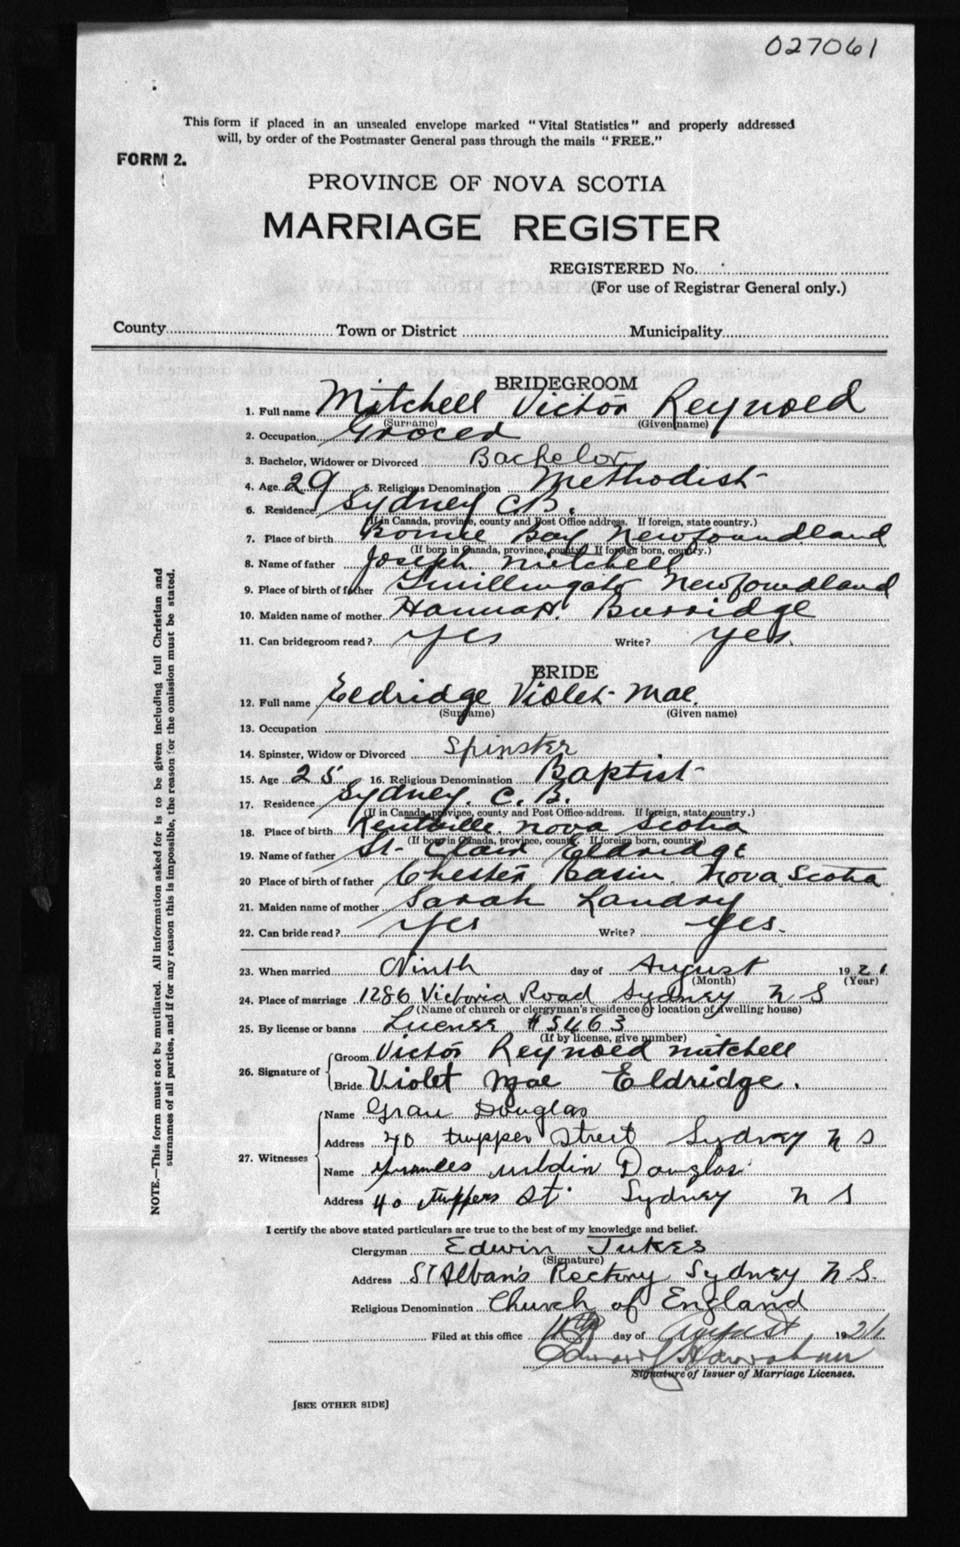 027061
This form if placed in an unsealed envelope marked "Vital Statistics" and properly addressed
will, by order of the Postmaster General pass through the mails "FREE."
FORM 2.
PROVINCE OF NOVA SCOTIA
MARRIAGE REGISTER
REGISTERED No.
(For use of Registrar General only.)
County Town or District Municipality
BRIDEGROOM
1. Full name Mitchell Victor Reynoed
(Surname) (Given name)
2. Occupation Grocer
3. Bachelor, Widower or Divorced Bachelor
4. Age 29 5. Religious Denomination Methodist
6. Residence Sydney C.B.
(If in Canada, province, county and Post Office address. If foreign, state country.)
7. Place of birth Bonne Bay Newfoundland
(If born in Canada, province, county. If foreign born, country.)
8. Name of father Joseph Mitchell
9. Place of birth of father Newfoundland
10. Maiden name of mother Hannah Burridge
11. Can bridegroom read? Yes Write? Yes.
BRIDE
12. Full name Eldridge Violet Mae.
(Surname) (Given name)
13. Occupation
14. Spinster, Widow or Divorced Spinster
15. Age 25 16. Religious Denomination Baptist
17. Residence Sydney. C. B.
(If in Canada, province, county and Post Office address. If foreign, state country.)
18. Place of birth Kentville Nova Scotia
(If born in Canada, province, county. If foreign born, country.)
19. Name of father St. Clair Eldridge
20 Place of birth of father Chester Basin. Nova Scotia
21. Maiden name of mother Sarah Landry
22. Can bride read? Yes Write? Yes.
23. When married Ninth day of August 1921
(Month) (Year)
24. Place of marriage 1286 Victoria Road Sydney N S
(Name of church or clergyman's residence or location of dwelling house)
25. By license or banns License #5463
(If by license, give number)
26. Signature of Groom Victor Reynoed Mitchell
Bride Violet Mae Eldridge.
27. Witnesses Name Douglas
Address 40 Tupper Street Sydney N S
Name Douglas
Address 40 Tuppers St. Sydney N S
I certify the above stated particulars are true to the best of my knowledge and belief.
Clergyman Edwin Jukes
(Signature)
Address St Alban's Rectory Sydney N.S.
Religious Denomination Church of England
Filed at this office day of August 1921
Signature of Issuer of Marriage Licenses.
[SEE OTHER SIDE]
NOTE.—This form must not be mutilated. All information asked for is to be given including full Christian and
surnames of all parties, and if for any reason this is impossible, the reason for the omission must be stated.